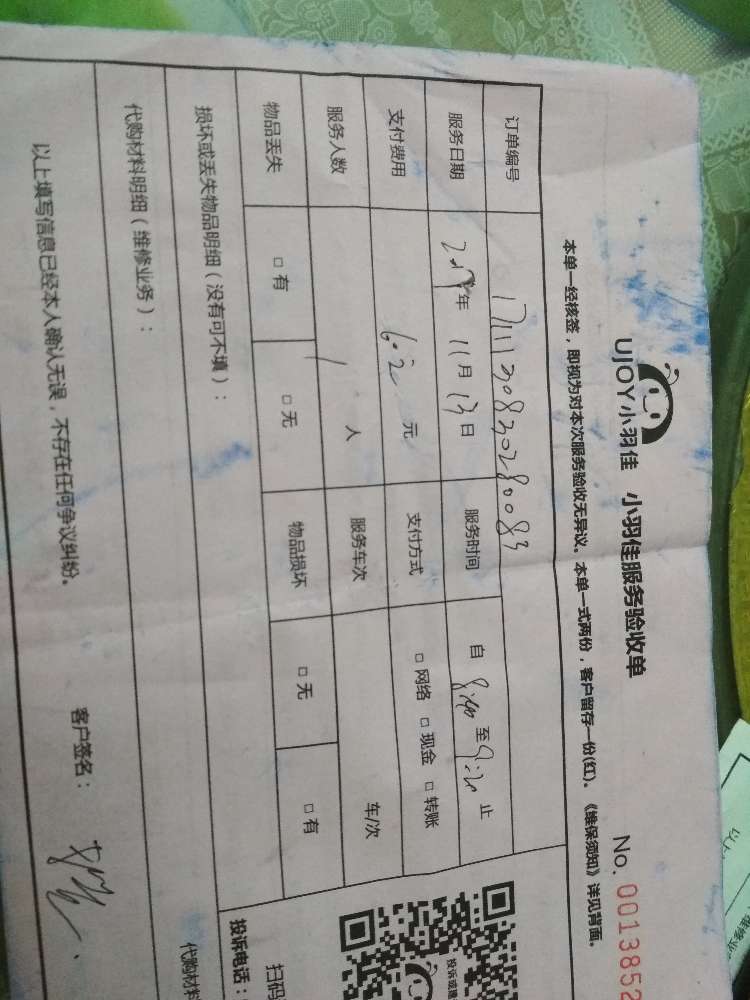 UJOY小羽佳 小羽佳服务验收单 No. 0013852
本单一经核签，即视为对本次服务验收无异议。本单一式两份，客户留存一份(红)。《维保须知》详见背面。
订单编号 1711130830280083
服务日期 年 11月 13日 服务时间 自 至 止
支付费用 元 支付方式 □网络 □现金 □转账
服务人数 1 人 服务车次 车/次
物品丢失 □有 □无 物品损坏 □无 □有
损坏或丢失物品明细（没有可不填）：
代购材料明细（维修业务）：
以上填写信息已经本人确认无误，不存在任何争议纠纷。 客户签名：
扫码
投诉电话：
代购材料